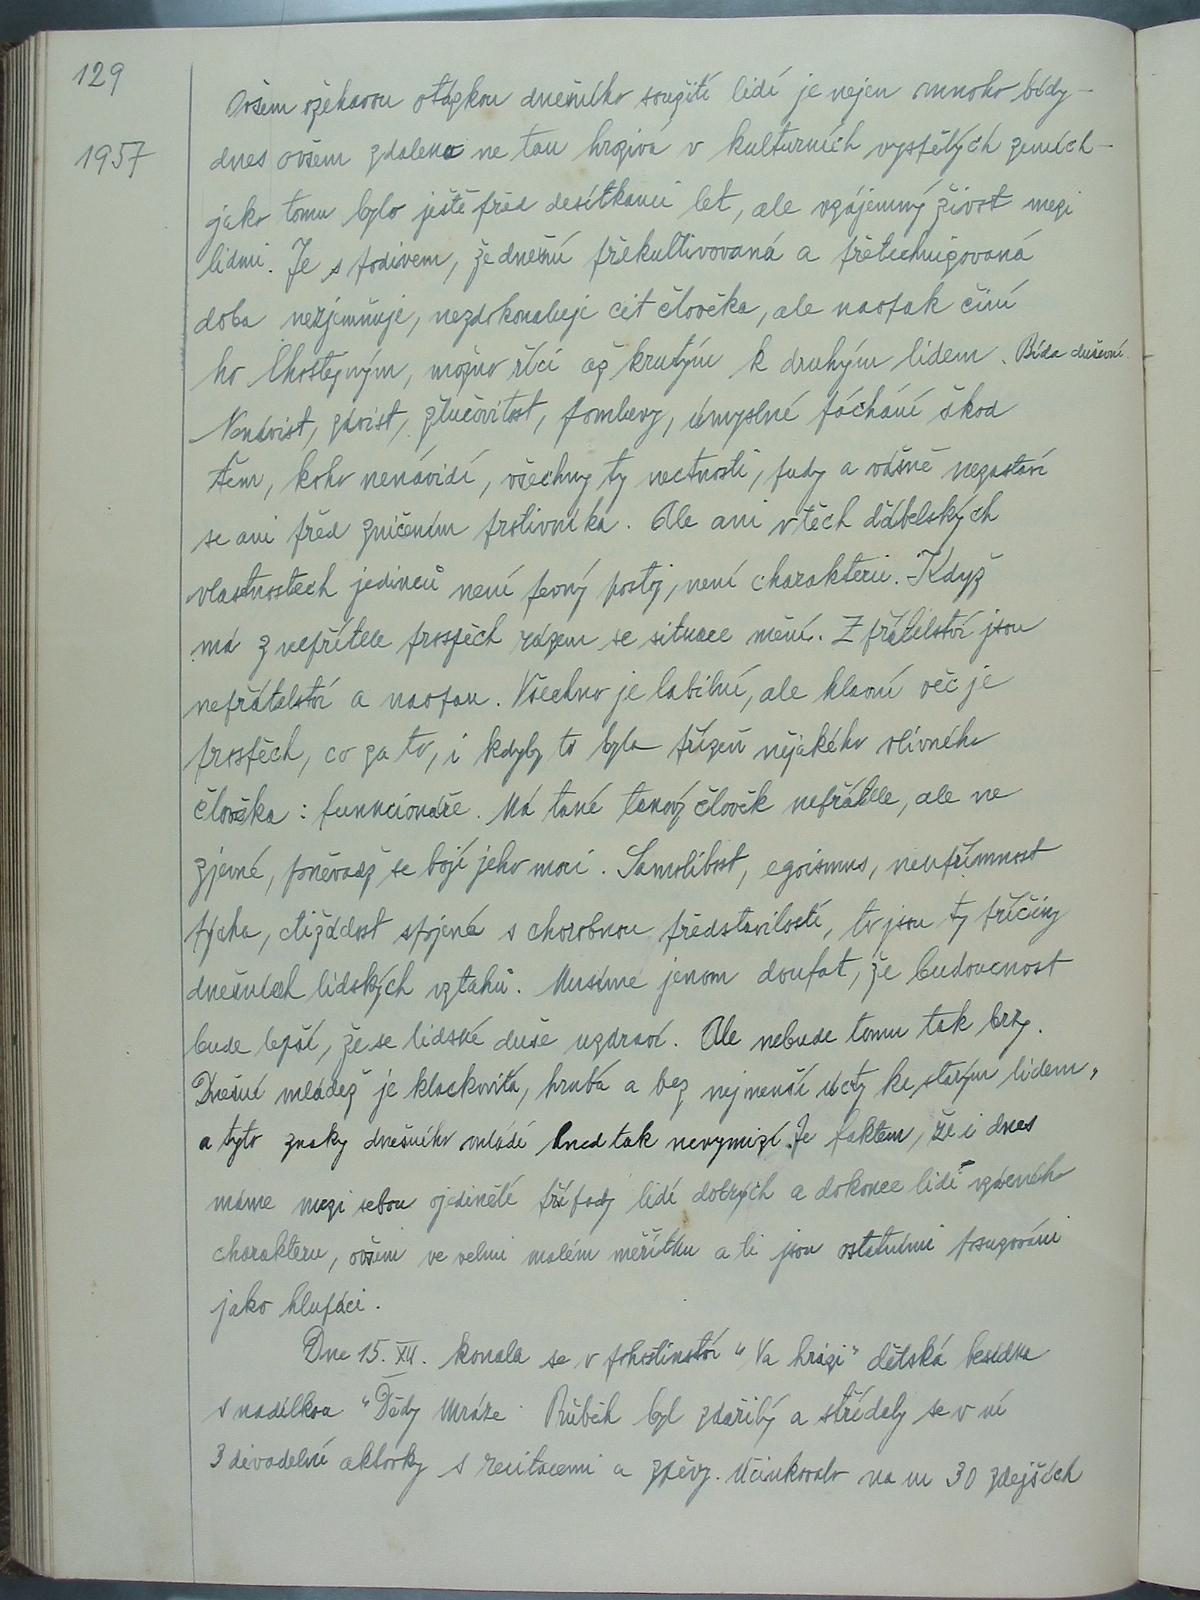 129
1957
Ovšem ožehavou otázkou dnešního soužití lidí je nejen mnoho bídy –
dnes ovšem zdaleka ne tak hrozivá v kulturních vyspělých zemích –
jako tomu bylo ještě před desítkami let, ale vzájemný život mezi
lidmi. Je s podivem, že dnešní překultivovaná a přetechnizovaná
doba nezjemňuje, nezdokonaluje cit člověka, ale naopak činí
ho lhostejným, možno říci až krutým k druhým lidem. Bída duševní.
Nenávist, závist, žlučovitost, pomluvy, úmyslné páchání škod
těm, koho nenávidí, všechny ty nectnosti, pudy a vášně nezastaví
se ani před zničením protivníka. Ale ani v těch ďábelských
vlastnostech jedinců není pevný postoj, není charakteru. Když
má z nepřítele prospěch rázem se situace mění. Z přátelství jsou
nepřátelství a naopak. Všechno je labilní, ale hlavní věc je
prospěch, co za to, i kdyby to byla přízeň nějakého vlivného
člověka: funkcionáře. Má také takový člověk nepřátele, ale ne
zjevné, poněvadž se bojí jeho moci. Samolibost, egoismus, neupřímnost
pýcha, ctižádost spojená s chorobnou představilostí, to jsou ty příčiny
dnešních lidských vztahů. Musíme jenom doufat, že budoucnost
bude lepší, že se lidské duše uzdraví. Ale nebude tomu tak brzy.
Dnešní mládež je klackovitá, hrubá a bez nejmenší úcty ke starým lidem,
a tyto znaky dnešního mládí hned tak nevymizí. Je faktem, že i dnes
máme mezi sebou ojedinělé případy lidí dobrých a dokonce lidí vzácného
charakteru, ovšem ve velmi malém měřítku a ti jsou ostatními posuzováni
jako hlupáci.
Dne 15. XII. konala se v pohostinství "Na hrázi" dětská besídka
s nadílkou "Dědy Mráze. Průběh byl zdařilý a střídaly se v ní
3 divadelní aktovky s recitacemi a zpěvy. Účinkovalo na ní 30 zdejších